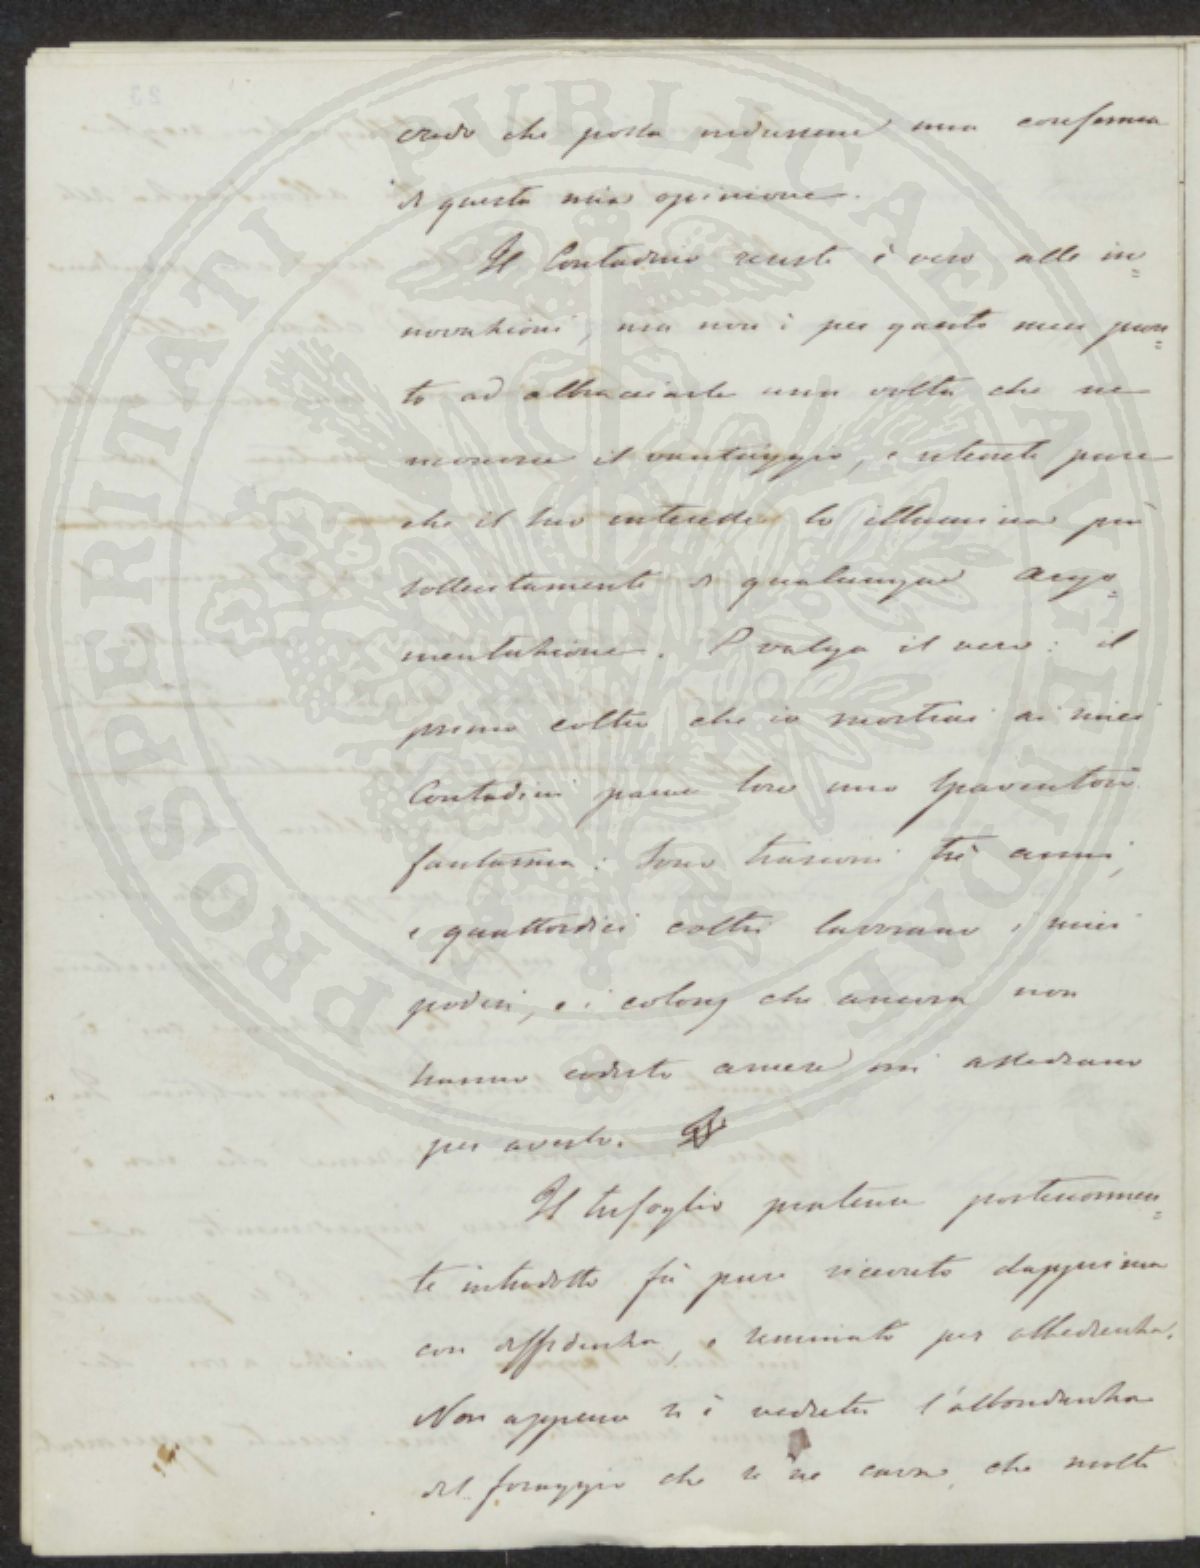 credo che possa vedersene una conferma
di questa mia opinione.
Il Contadino resiste è vero alle in=
novazioni, ma non è per questo men pron=
to ad abbracciarle una volta che ne
conosce il vantaggio, e ritenete pure
che il suo interesse lo illumina più
sollecitamente di qualunque argo=
mentazione. E valga il vero: il
primo coltro che io mostrai ai miei
Contadini parve loro uno spaventoso
fantasma: sono trascorsi tre anni,
e quattordici coltri lavorano i miei
poderi, e i coloni che ancora non
hanno codesto arnese mi assediano
per averlo.
Il trifoglio pratense posteriormen=
te introdotto fù pure ricevuto dapprima
con diffidenza, e seminato per obbedienza.
Non appena si è veduta l'abbondanza
del foraggio che se ne cava, che molti
PROSPERITATI PUBLICAE AUGENDAE